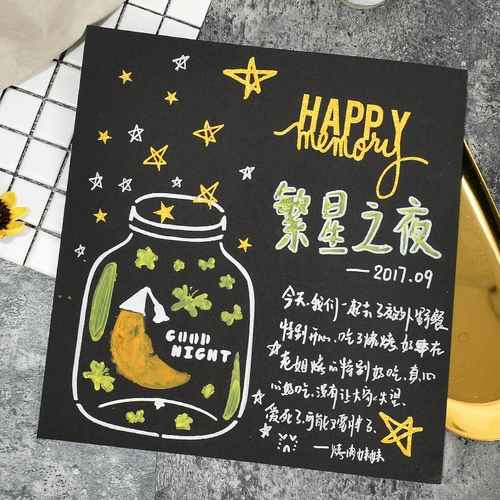 HAPPY
memory
繁星之夜
—2017.09
GOOD
NIGHT
今天,我们一起去了郊外野餐
特别开心,吃了烧烤,好事在
老姐烧的特别好吃,真心
心好吃,没有让大家失望.
爱死了,可能又要胖了.
—烤肉妹妹